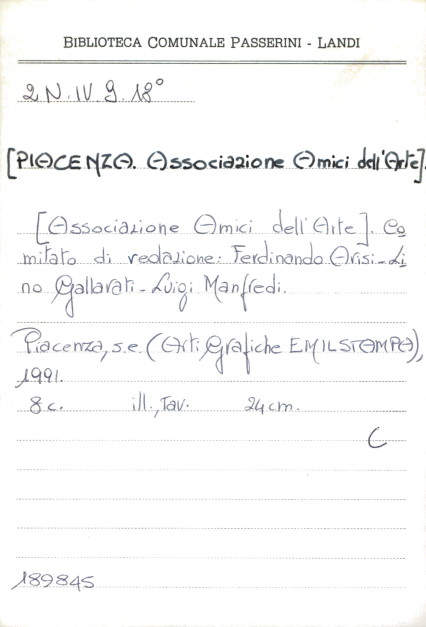 BIBLIOTECA COMUNALE PASSERINI - LANDI
2 N. IV. 9. 18°
[PIACENZA. Associazione Amici dell'Arte].
[Associazione Amici dell'Arte]. Co
mitato di redazione: Ferdinando Arisi - Li
no Gallarati - Luigi Manfredi.
Piacenza, s.e. (Arti Grafiche EMILSTAMPA),
1991.
8 c. ill., Tav. 24 cm.
C
189845